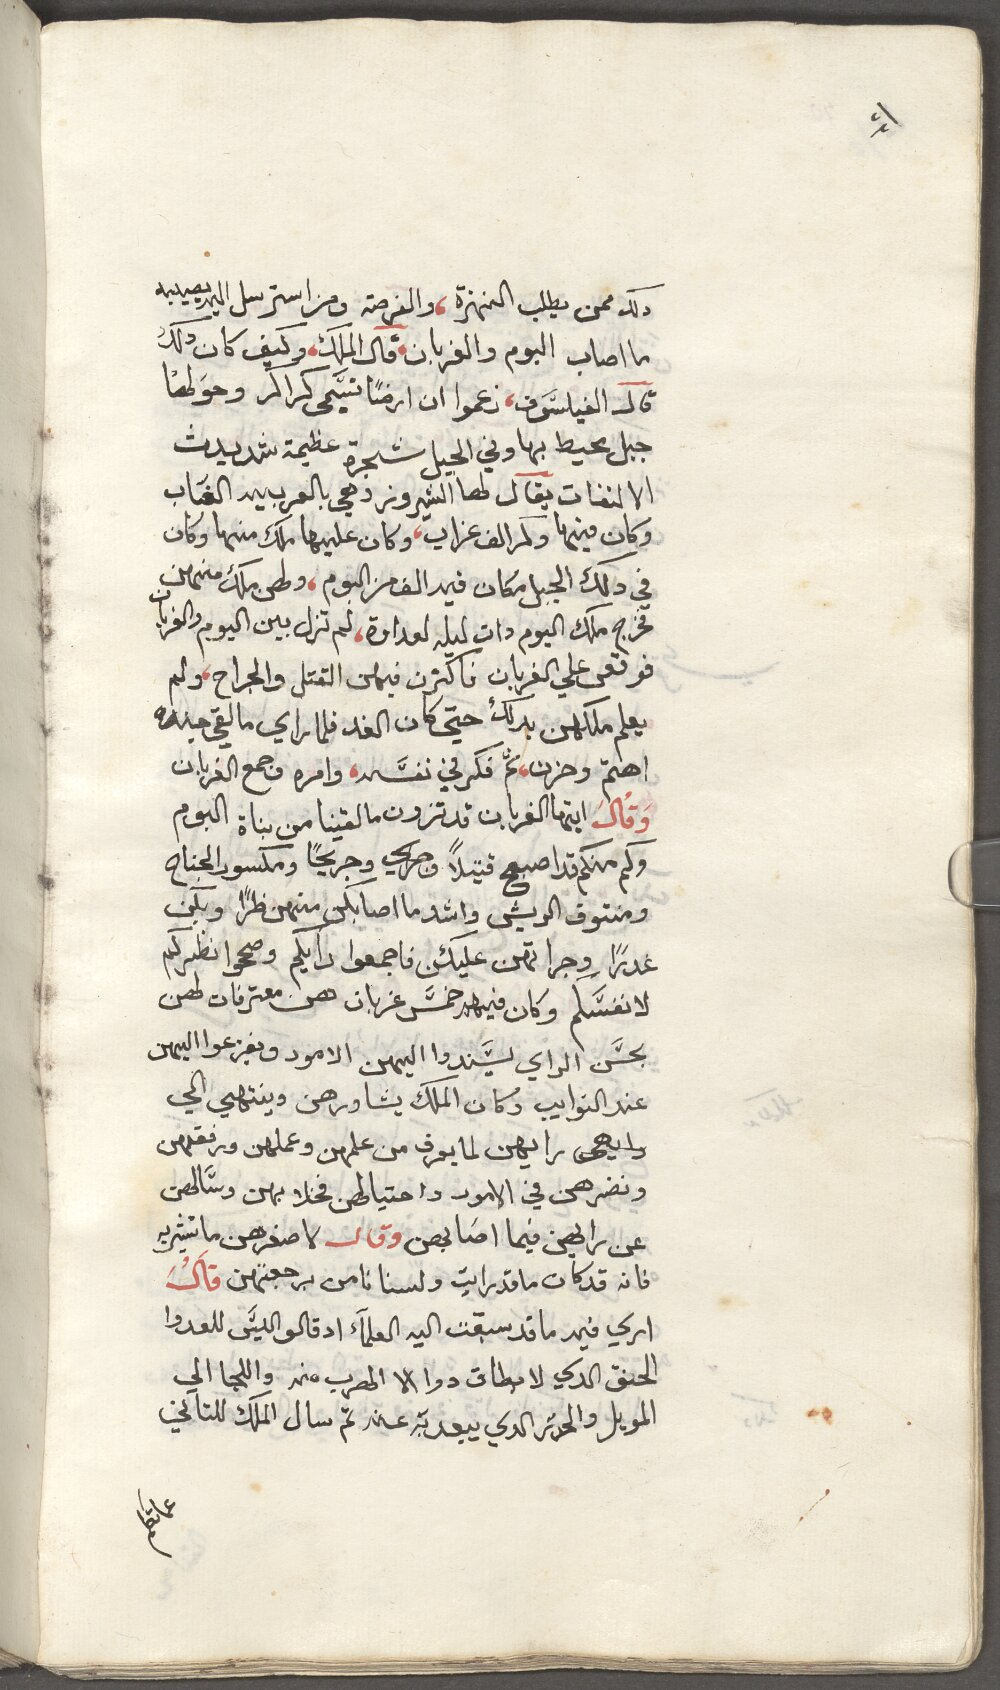 دلك ممن يطلب النهزة، والفرصه ومن استرسل اليه يصيبه
ما اصاب البوم والغربان، قال الملك، وكيف كان دلك
قال الفيلسوف، زعموا ان ارضًا تسمى كراكر وحولها
جبل يحيط بها وفي الجبل شجرة عظيمة شديدت
الالتفات يقال لها الشيرونزد هي بالعربيه الغاب
وكان فيها وكر الف غراب، وكان عليها ملك منها وكان
في دلك الجبل مكان فيه الف من البوم، ولهن ملك منهن
فخرج ملك البوم دات ليله لعداوة، لم تزل بين البوم والغربان
فوقعن علي الغربان فاكثرن فيهن القتل والجراح، ولم
يعلم ملكهن بدلك حتي كان الغد فلما راي ما لقي جنده
اهتم وحزن، ثم فكر في نفسه، وامره فجمع الغربان
وقال ايتها الغربان قد ترون ما لقينا من بناة البوم
وكم منكم قد اصبح قتيلاً وجريحًا ومكسور الجناح
ومنتوف الريش واشد ما اصابكن منهن ظرًا وبكن
غدرًا وجراتهن عليكن فاجمعوا رايكم وصححوا نظركم
لانفسكم وكان فيهم خمس غربان هن معترفات لهن
بحسن الراي يسندوا اليهن الامور ويفزعوا اليهن
عند النوايب وكان الملك يشاورهن وينتهي الي
رايهن لما يعرف من علمهن وعملهن ورفقهن
ونضرهن في الامور واحتياطهن فخلا بهن وسالهن
عن رايهن فيما اصابهن وقال لاصغرهن ما تشير به
فانه قد كان ما قد رايت ولسنا نامن برجعتهن قال
اري فيه ما قد سبقت اليه العلماء اد قالو ليس للعدوا
الحنق الدي لا يطاق دوا الا الهرب منه واللجا الي
الموبل والحرز الدي يبعد به عنه ثم سال الملك للثاني